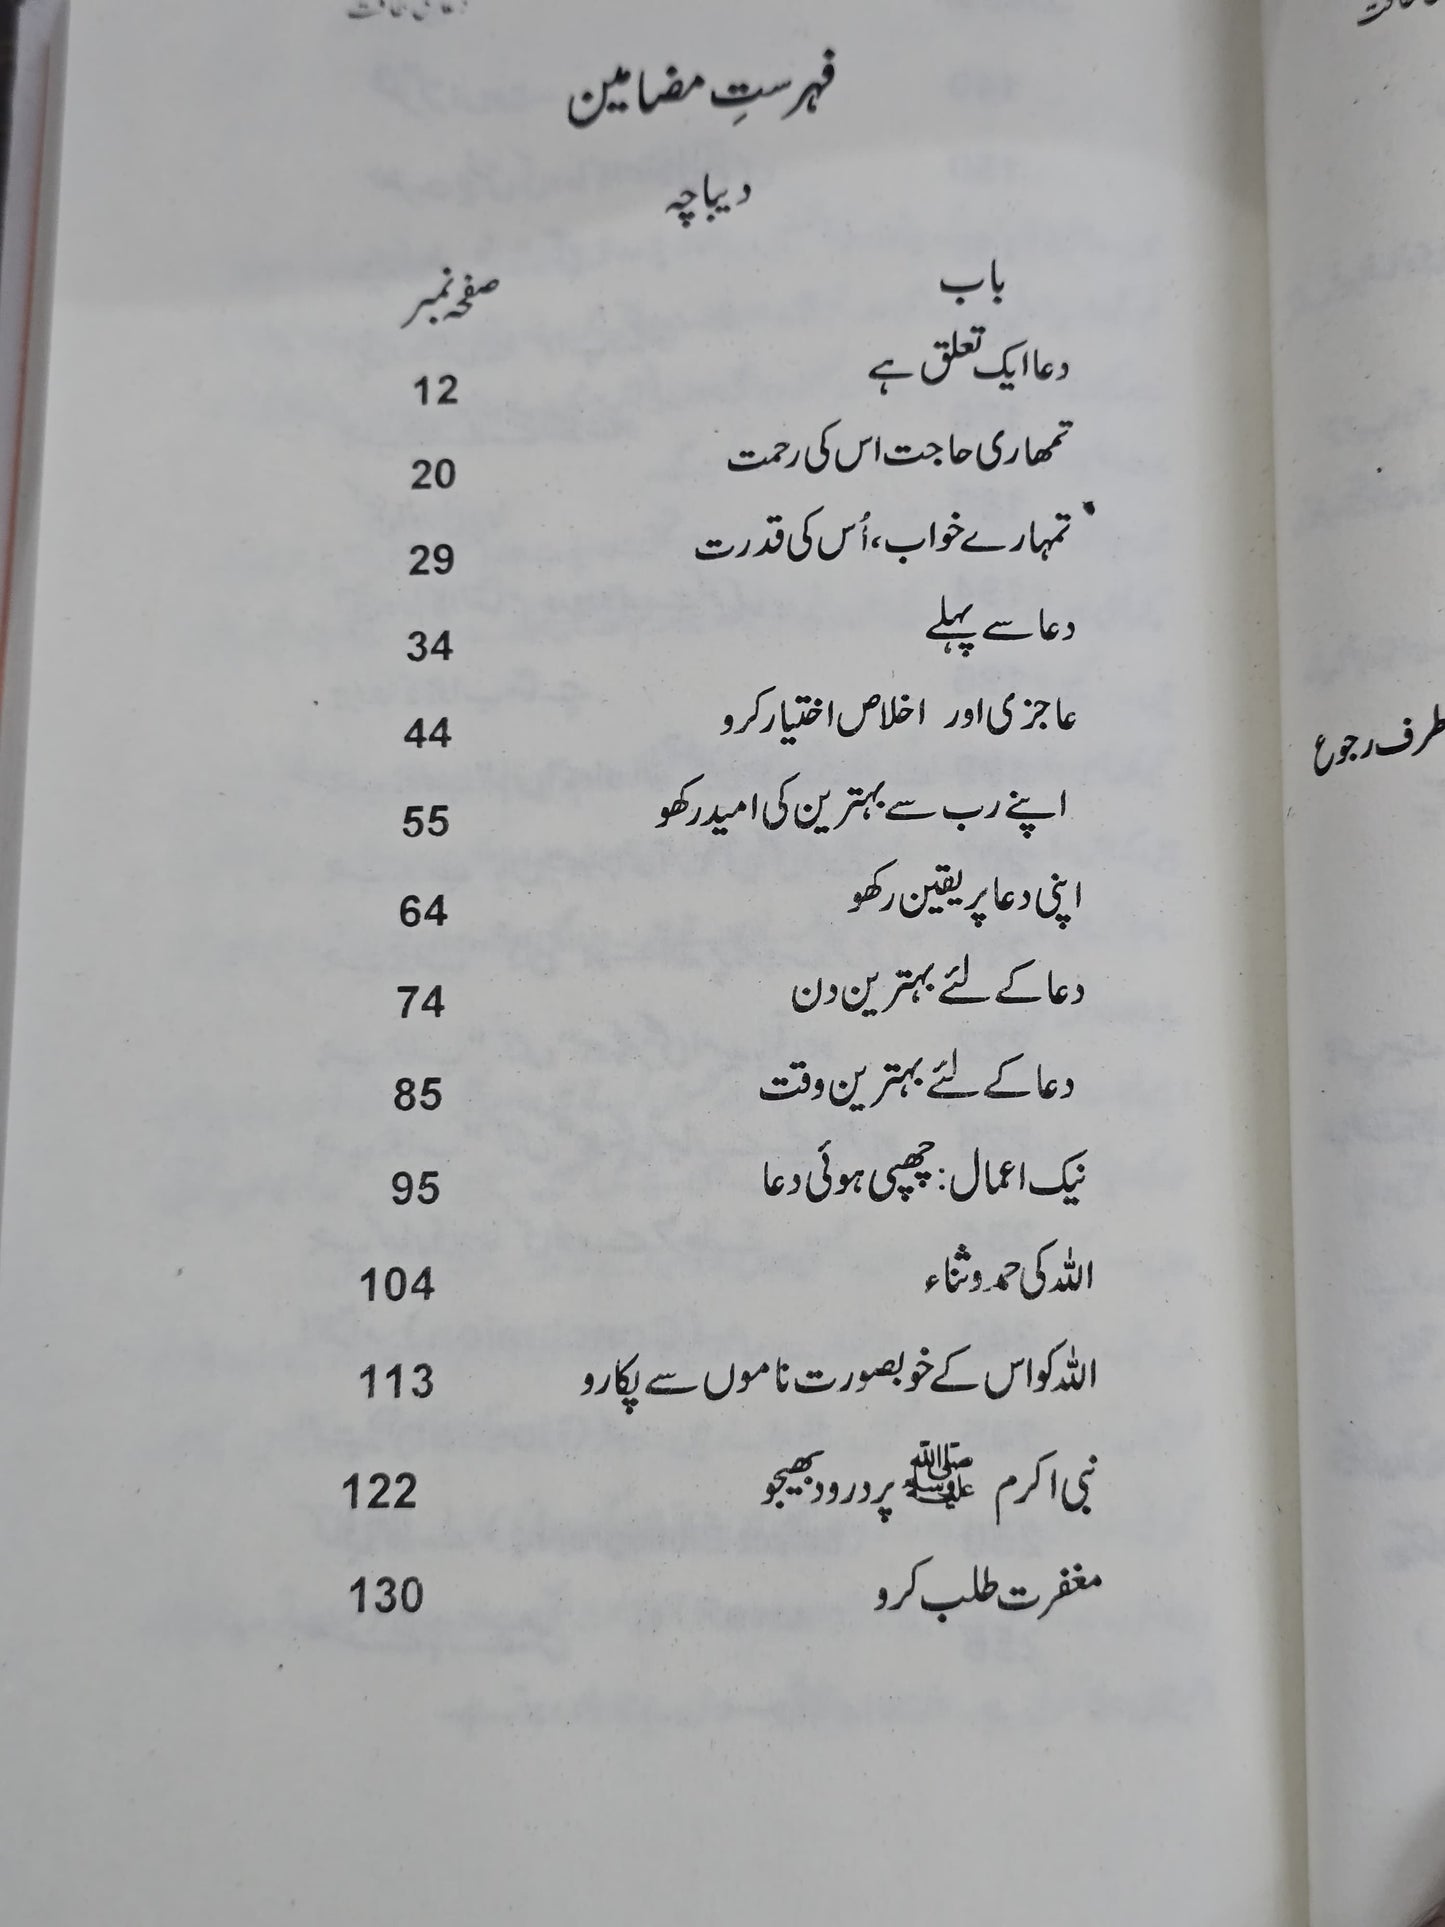 فہرستِ مضامین
دیباچہ
باب صفحہ نمبر
دعا ایک تعلق ہے 12
تمھاری حاجت اس کی رحمت 20
تمہارے خواب، اُس کی قدرت 29
دعا سے پہلے 34
عاجزی اور اخلاص اختیار کرو 44
اپنے رب سے بہترین کی امید رکھو 55
اپنی دعا پر یقین رکھو 64
دعا کے لئے بہترین دن 74
دعا کے لئے بہترین وقت 85
نیک اعمال: چھپی ہوئی دعا 95
اللہ کی حمد و ثناء 104
اللہ کو اس کے خوبصورت ناموں سے پکارو 113
نبی اکرم ﷺ پر درود بھیجو 122
مغفرت طلب کرو 130
طرف رجوع